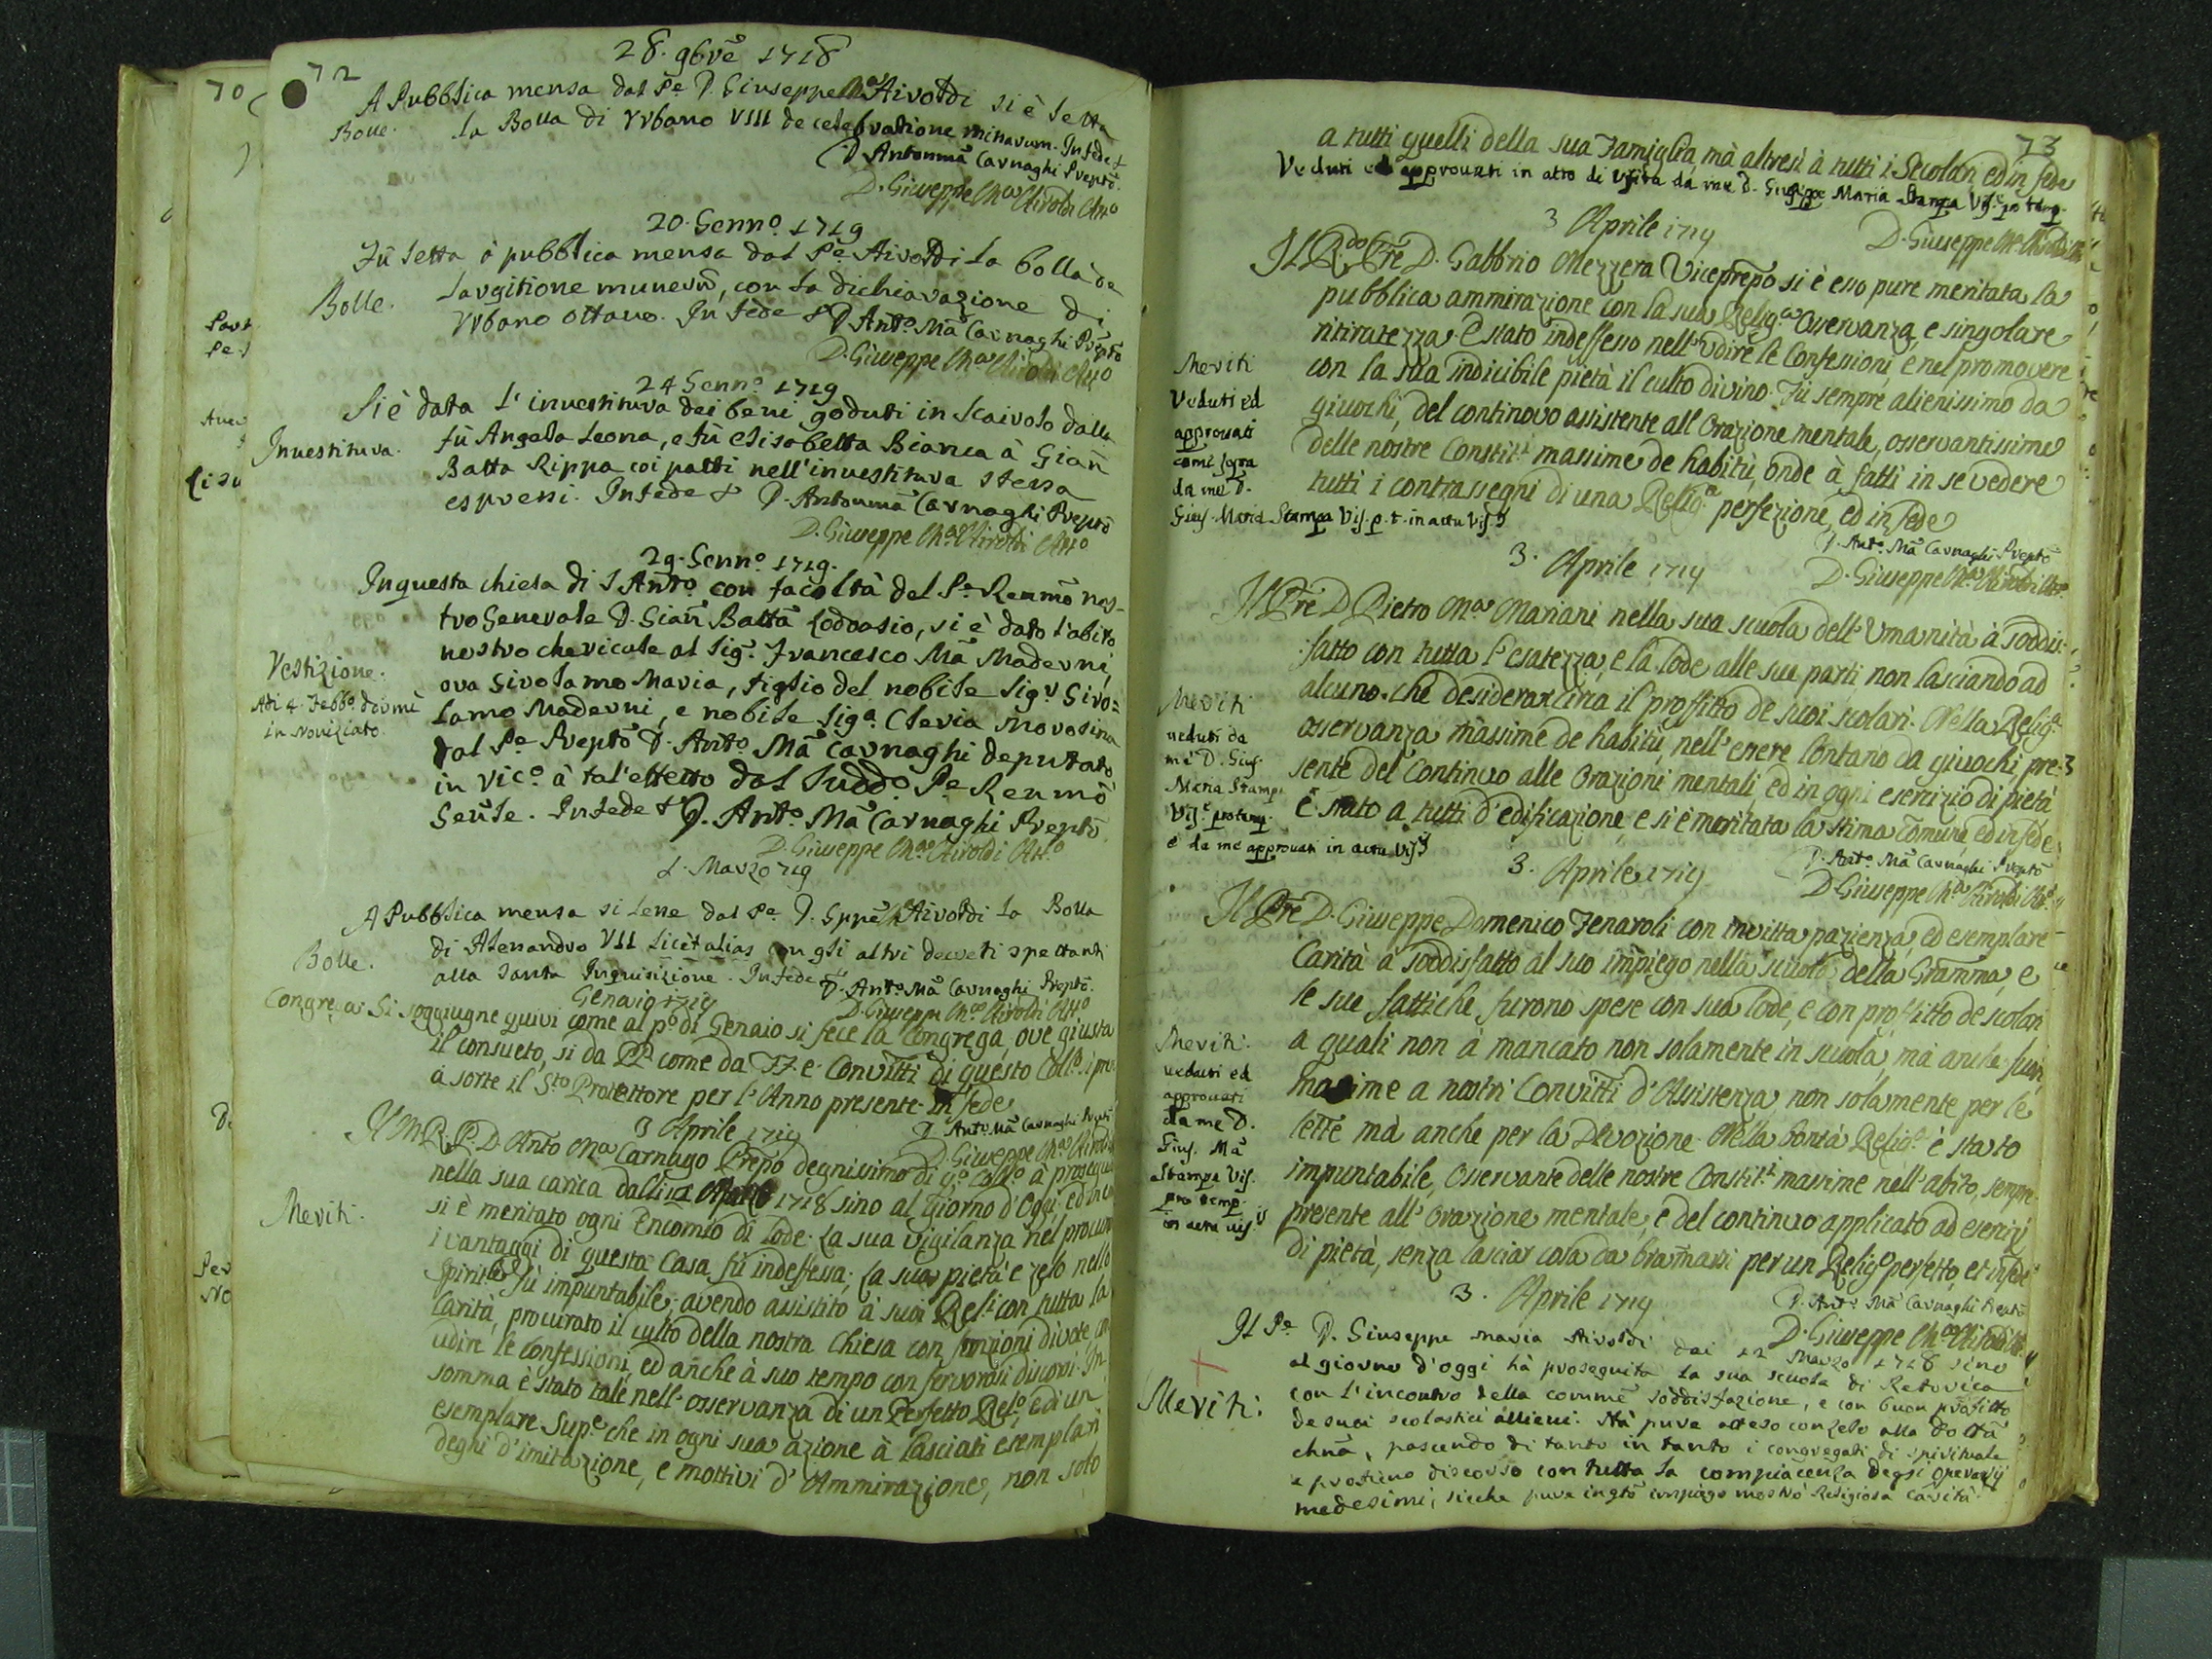 70
72
28. 9bre 1718
A Pubblica mensa dal Pe. D. Giuseppe Ma Airoldi si è letta
Bolle. la Bolla di Vrbano VIII de celebratione missarum. In fede &
D. Antonmã Carnaghi Preptõ.
D. Giuseppe Ma. Airoldi Atto
20. Gennº. 1719
Fù letta à pubblica mensa dal Pe Airoldi la bolla de
Bolle. largitione munerũ, con la dichiarazione di
Vrbano ottavo. In fede & D. Antº. Mã Carnaghi Preptõ
D. Giuseppe Ma. Airoldi Atto
24 Gennº. 1719
Si è data l'investitura dei beni goduti in Scairolo dalla
Investitura. fù Angela Leona, e fù Elisabetta Bianca à Giañ
Batta Rippa coi patti nell'investitura stessa
espressi. In fede & D. Antonmã Carnaghi Preptõ
D. Giuseppe Ma. Airoldi Atto
29. Gennº. 1719.
In questa chiesa di S Antº. con facoltà del Pe. Reumõ nos-
tro Generale D. Giañ Battã Lodoasio, si è dato l'abito
nostro chericale al Sig. Francesco Mã Maderni,
Vestizione. ora Girolamo Maria, figlio del nobile Sigr Giro=
Adi 4. Febbº. dormì lamo Maderni, e nobile Siga. Clevia Morosina
in noviziato. dal Pe. Preptõ D. Antº. Mã Carnaghi deputato
in Vicº. à tal'effetto dal Suddº. Pe Reumõ
Geñle. In fede & D. Antº. Mã Carnaghi Preptõ
D. Giuseppe Ma. Airoldi Atto
1. Marzo 719
A Pubblica mensa si lesse dal Pe. D. Gppe Ma Airoldi la Bolla
Bolle. di Alessandro VII licèt alias con gli altri decreti spettanti
alla Santa Inquisizione. In fede & D. Antº Mã Carnaghi Preptõ.
D. Giuseppe Ma. Airoldi Atto
Genaio 1719
Congrega. Si soggiugne quivi come al pº. di Genaio si fece la Congrega, ove giusta
il consueto, si da PP. come da FF. e Convitti di questo Collº.
à sorte il Sto Protettore per l'Anno presente. In fede
D. Antº Mã Carnaghi Preptõ
3 Aprile 1719
D. Giuseppe Ma. Airoldi
Il M. R. P. D. Anto Ma Carnago Prepo degnissimo di qo. Collo. à proseguito
nella sua carica dalli 12 1718 sino al Giorno d'Oggi, ed in
Meriti. si è meritato ogni Encomio di lode. La sua vigilanza nel procurar
i vantaggi di questa Casa fù indefessa; la sua pietà e zelo nello
Spirit fù impuntabile; avendo assistito à suoi Reli con tutta la
Carità, procurato il culto della nostra Chiesa con funzioni divote
udire le confessioni, ed anche à suo tempo con fervorosi discorsi. In
somma è stato tale nell'osservanza di un Perfetto Relo, e di un
esemplare Supe. che in ogni sua azione à lasciati esemplari
degni d'imitazione, e mottivi d'Ammirazione, non solo
73
a tutti quelli della sua Famiglia, mà altresì à tutti i Secolari, ed in fede
Veduti ed approuati in atto di Vista da me D. Giuseppe Maria Stampa Vis. pro temp.
3 Aprile 1719
D. Giuseppe Ma. Airoldi Atto
Il R.do Pre D. Gabbrio Mezzera Viceprepo si è esso pure meritata la
pubblica ammirazione con la sua Religa. Osservanza, e singolare
ritiratezza. È stato indefesso nell'udire le Confessioni, e nel promovere
con la sua indicibile pietà il culto divino. Fù sempre alienissimo da
giuochi, del continovo assistente all'orazione mentale, osservantissimo
delle nostre Constiti. massime de habitù, onde à fatti in se vedere
tutti i contrassegni di una Religa. perfezione, ed in fede
Meriti
Veduti ed
approuati
come sopra
da me D.
Gius. Maria Stampa Vis. p. t. in actu Vis.
D. Antº. Mã Carnaghi Preptõ
3. Aprile 1719
D. Giuseppe Ma. Airoldi Atto.
Il Pre D Pietro Ma. Mariani nella sua scuola dell'Umanità à soddis-
fatto con tutta l'esatezza, e la lode alle sue parti, non lasciando ad
alcuno che desiderar circa il proffitto de suoi scolari. Nella Religa.
osservanza massime de habitù, nell'essere lontano da giuochi, pre-
sente del Continuo alle Orazioni mentali, ed in ogni esercizio di pietà
è stato a tutti d'edificazione, e si è meritata la stima comune, ed in fede
Meriti
ueduti da
me D. Gius.
Maria Stampa
Vis. pro temp.
e da me approuati in actu Vis.
D. Antº. Mã Carnaghi Preptõ
3. Aprile 1719
D. Giuseppe Ma. Airoldi Atto.
Il Pre D. Giuseppe Domenico Fenaroli con invitta pazienza, ed esemplare
Carità à soddisfatto al suo impiego nella scuola della Gramma, e
le sue fattiche furono spese con sua lode, e con proffitto de scolari
a quali non à mancato non solamente in scuola, mà anche fuori
massime a nostri Convitti d'Assistenza, non solamente per le
lettè mà anche per la Devozione. Nella bontà Religa. è stato
impuntabile, Osservante delle nostre Constit.i massime nell'abito, sempre
presente all'orazione mentale, e del continuo applicato ad esercizj
di pietà, senza lasciar cosa da bramarsi per un Religo perfetto, et in fede
Meriti.
ueduti ed
approuati
da me D.
Gius. Mã
Stampa Vis.
pro temp.
in actu uis.
D. Antº. Mã Carnaghi Preptõ
3. Aprile 1719
D. Giuseppe Ma. Airoldi Atto.
Il Pe D. Giuseppe Maria Airoldi dai 12 Marzo 1718 sino
al giorno d'oggi hà proseguita la sua scuola di Retorica
Meriti: con l'incontro della commẽ soddisfazione, e con buon profitto
de suoi scolastici allieui. Hà pure atteso con zelo alla Dottã
chnã, pascendo di tanto in tanto i congregati di spirituale
e proficuo discorso con tutta la compiacenza degli operarij
medesimi, sicche pure in qtõ impiego mostrò Religiosa carità.